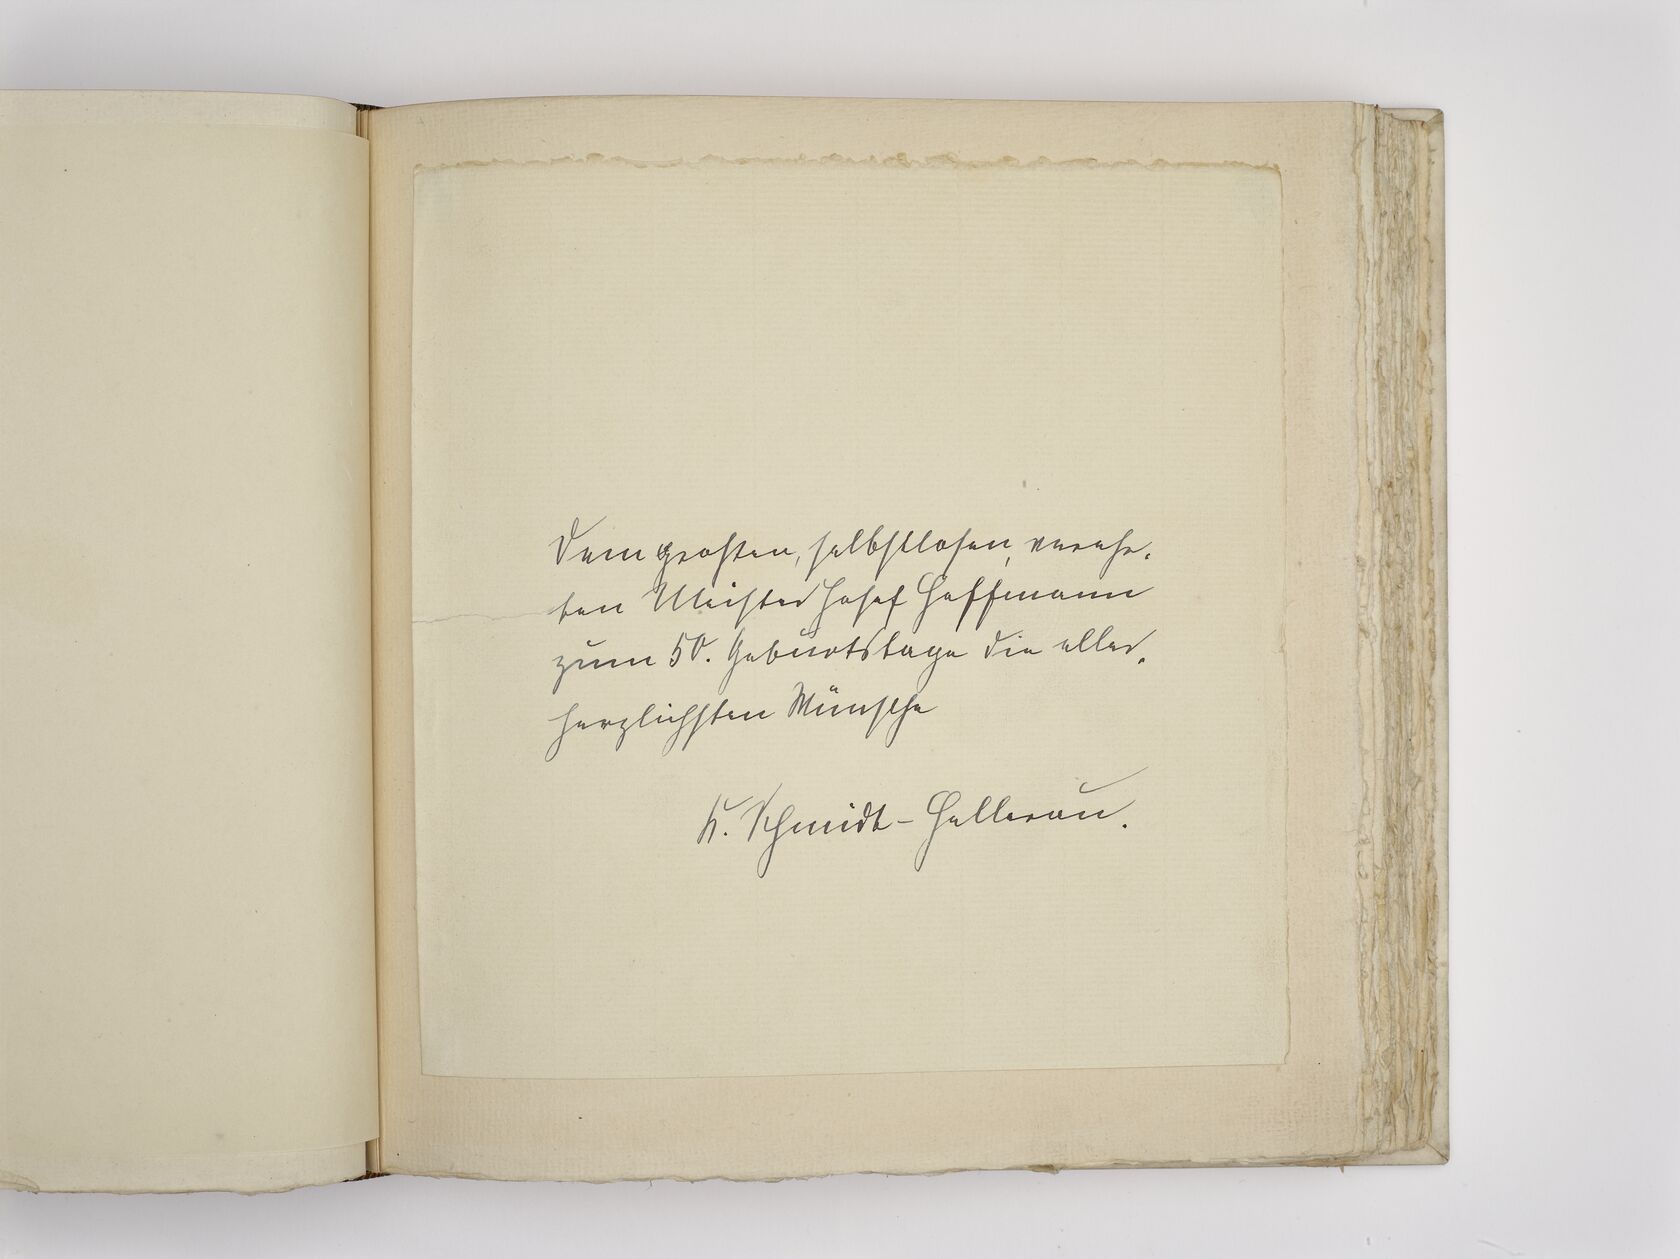 Dem grossten, selbstlosen, verehr-
ten Meister Josef Hoffmann
zum 50. Geburtstage die aller-
herzlichsten Wünsche
K. Schmidt-Hellerau.